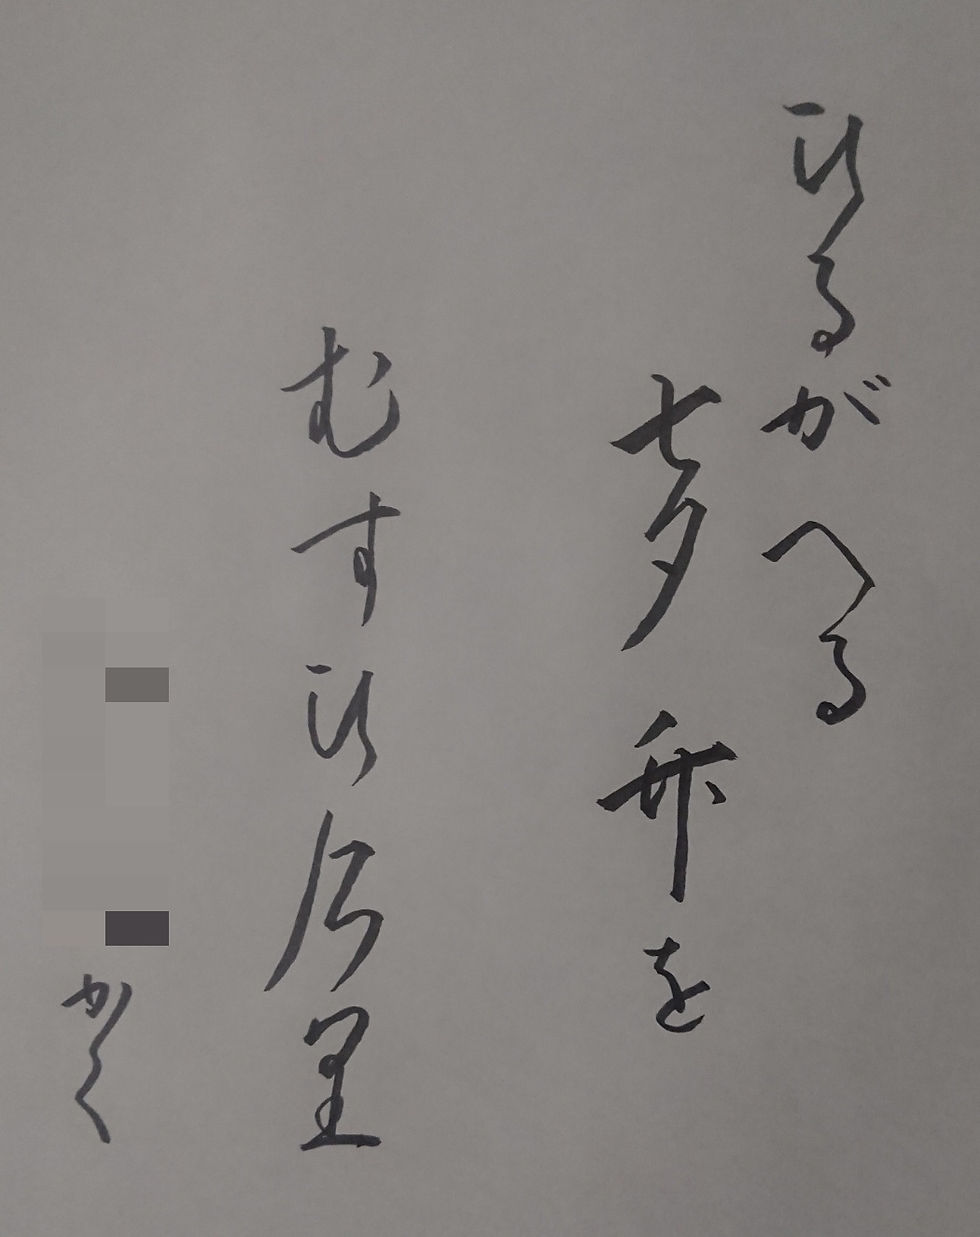 ひるがへる
七夕竹を
むすひ居里
かく